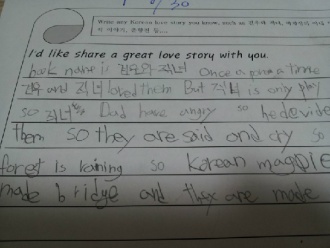 Write any Korean love story you know, such as 견우와 직녀,
I'd like share a great love story with you.
book name is 견우와 직녀 Once a pon a time
견우 and 직녀 loved them But 직녀 is only play
so 직녀 Dad have angry so he devide
them so they are said and cry so
forest is raining so Korean magpie
made bridge and they are made